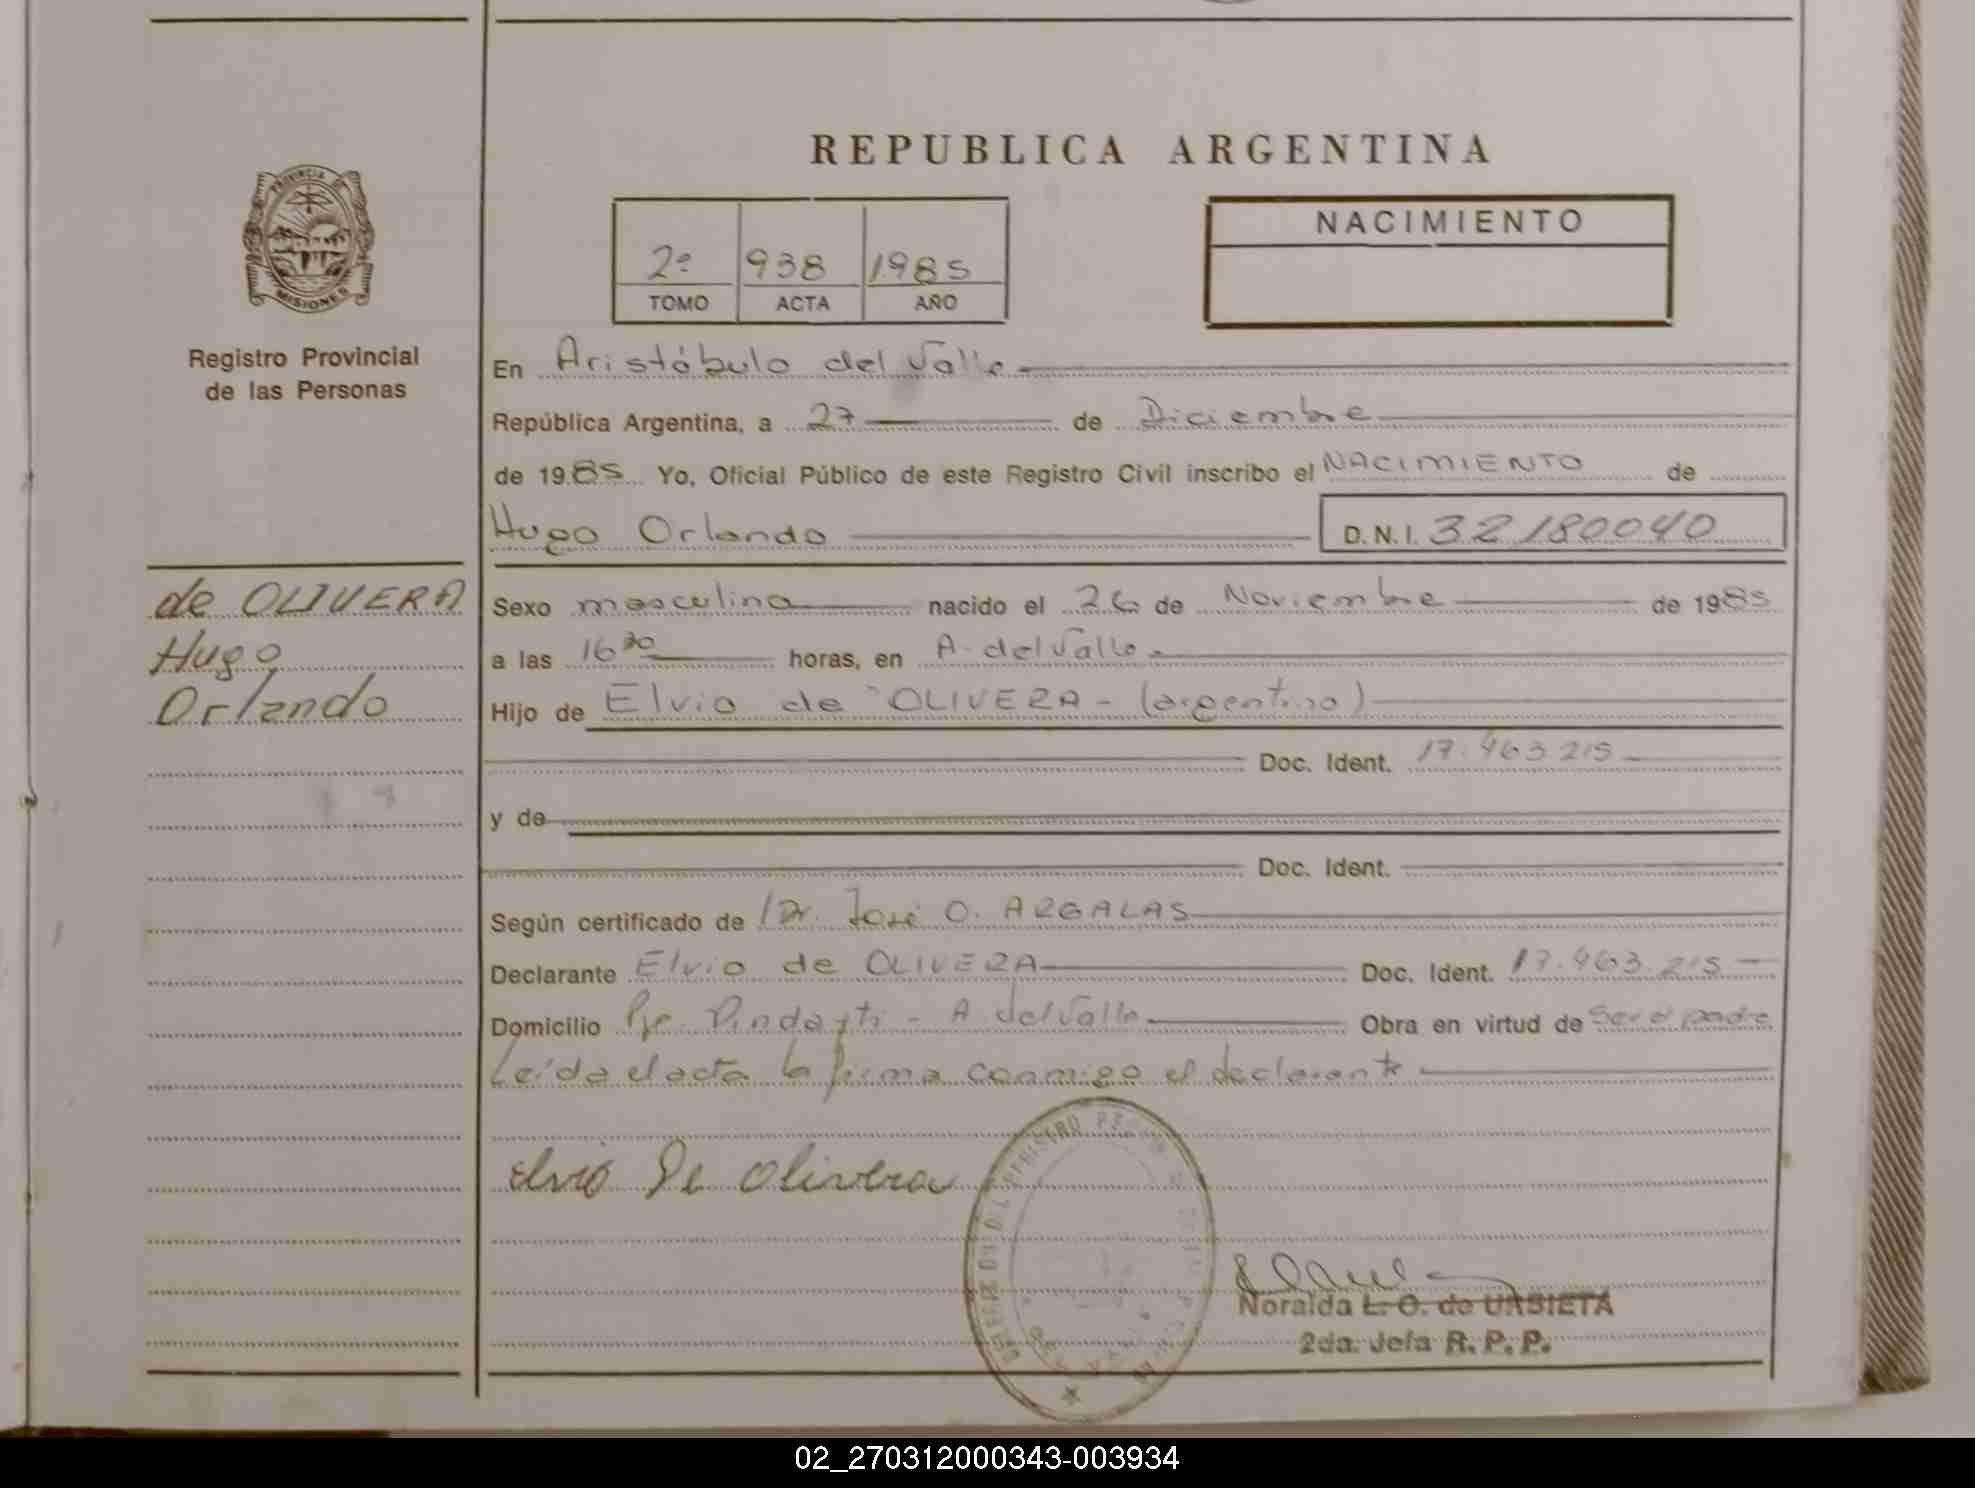 REPUBLICA ARGENTINA
PROVINCIA DE
MISIONES
Registro Provincial
de las Personas
2º 938 1985
TOMO ACTA AÑO
NACIMIENTO
En Aristóbulo del Valle
República Argentina, a 27 de Diciembre
de 1985 Yo, Oficial Público de este Registro Civil inscribo el NACIMIENTO de
Hugo Orlando D.N.I. 32180040
de OLIVERA
Hugo
Orlando
Sexo masculino nacido el 26 de Noviembre de 1985
a las 16 30 horas, en A. del Valle
Hijo de Elvio de OLIVERA - (argentino)
Doc. Ident. 17.463.215
y de
Doc. Ident.
Según certificado de Dr. José O. ARGALAS
Declarante Elvio de OLIVERA Doc. Ident. 17.463.215
Domicilio A. del Valle Obra en virtud de ser el padre
Leída el acta la firma conmigo el declarante
Elvio De Olivera
Noralda L. O. de URSIETA
2da. Jefa R. P. P.
02_270312000343-003934